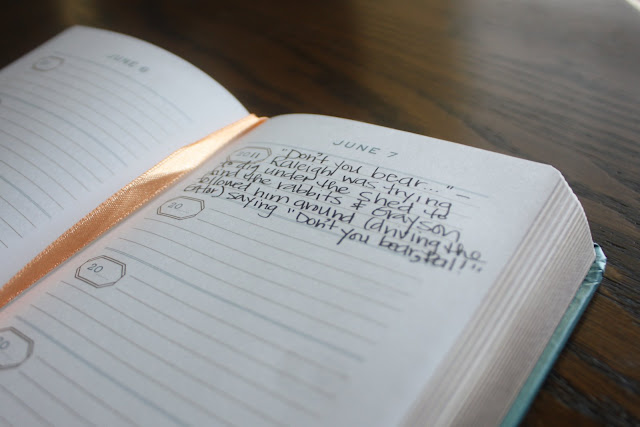 JUNE 6
JUNE 7
2011 "Don't you bear..." —
Raleigh was trying
to dig under the shed to
find the rabbits & Grayson
followed him around (driving the
Gator) saying "Don't you
20
20
20